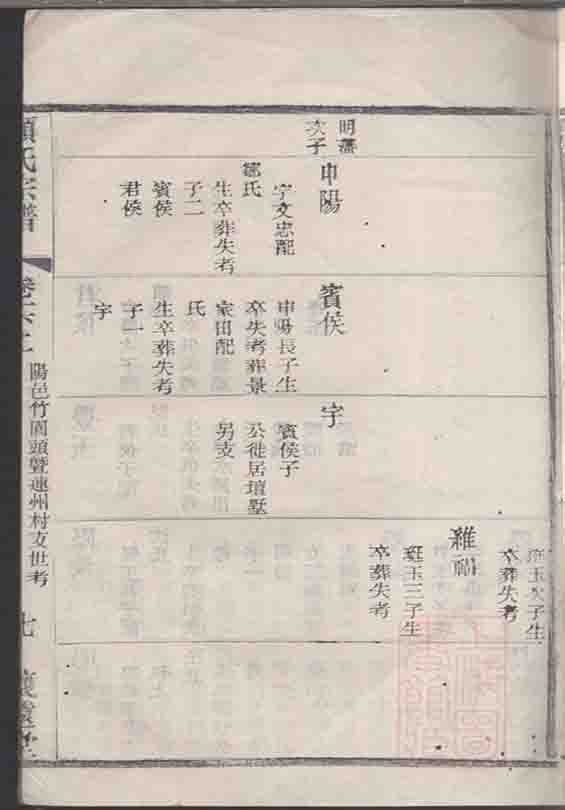 明藩
次子
申陽
字文忠配
鄒氏
生卒葬失考
子二
賓侯
君侯
賓侯
申陽長子生
卒失考葬景
家田配
氏
生卒葬失考
子一
宇
宇
賓侯子
公徙居壇墅
另支
玉次子生
卒葬失考
維
玉三子生
卒葬失考
氏宗譜
卷
陽邑竹園頭暨連州村支世考
七